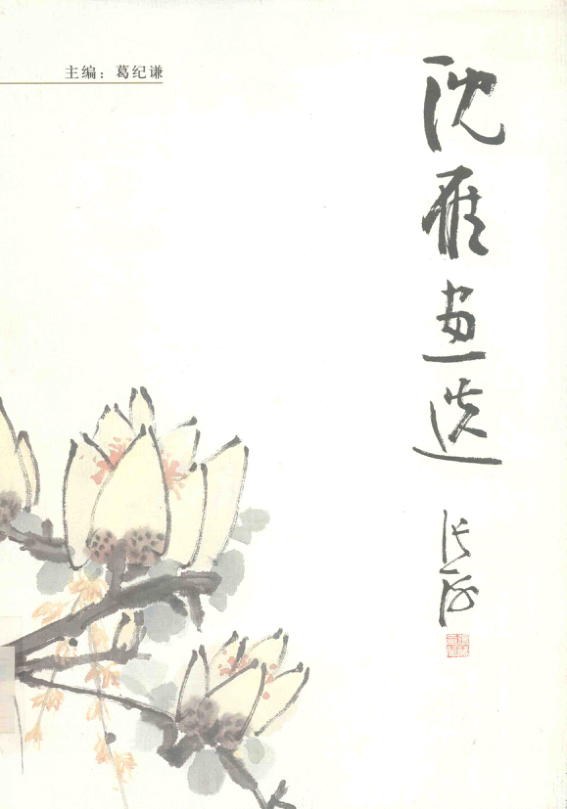 主编：葛纪谦
沈雁画选